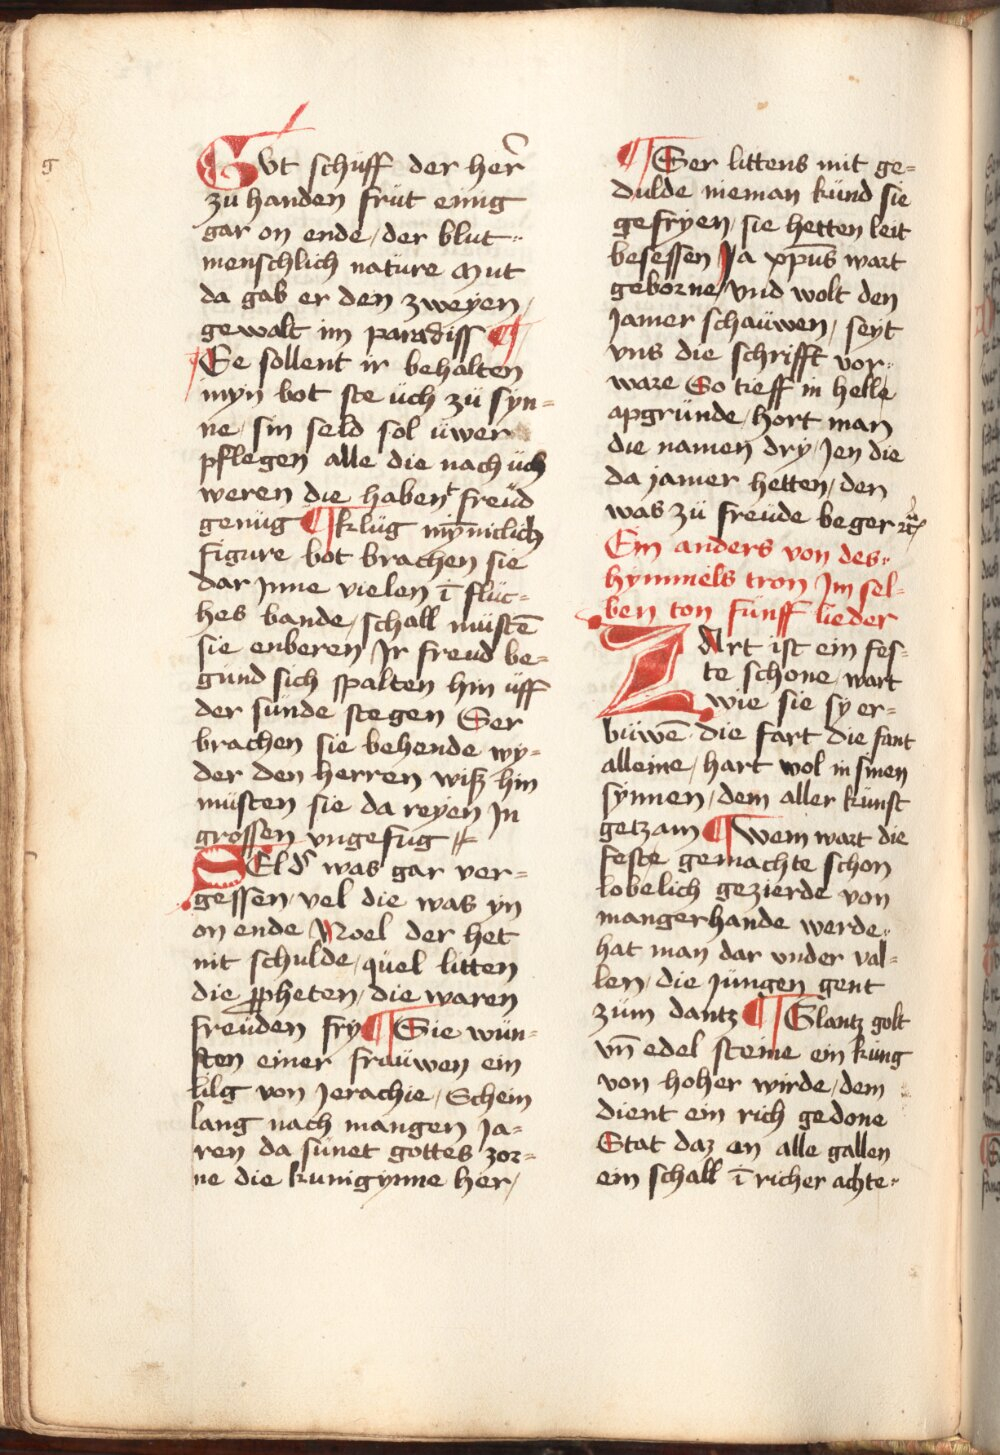 g
Gvt schüff der her̃
zu handen früt einig
gar on ende / der blut
menschlich nature Mut
da gab er den zweyen /
gewalt im paradiss ¶
Se sollent ir behalten
myn bot ste üch zü syn=
ne / sin seld sol uwer
pflegen alle die nach üch
weren die haben freüd
genüg ¶ klüg mỹniclich
figure bot brachen sie
dar Inne vielen ī flüc=
hes bande / schall müstē
sie enberen Ir freud be=
gund sich spalten hin uff
der sünde stegen Ser
brachen sie behende wy=
der den herren wiß hin
müsten sie da reyen In
grossen vngefug
SEld' was gar ver=
gessen / vel die was yn
on ende Noel der het
nit schulde / quel litten
die ꝓpheten / die waren
freüden fry ¶ Sie wün=
sten einer fraüwen ein
lilg von Jerachie / Schein
lang nach mangen Ja=
ren da sünet gottes zor=
ne die kunigynne her /
¶ Ser littens mit ge=
dulde nieman künd sie
gefryen / sie hetten leit
besessen Ja xp̄us wart
geborne / vnd wolt den
Jamer schaüwen / seyt
vns die schrifft vor=
ware So tieff in helle
apgründe / hort man
die namen dry / Jen die
da jamer hetten / den
was zü freüde beger
Ein anders von des
hymmels tron Im sel=
ben ton fünff lieder
ZArt ist ein fes=
te schone / wart
wie sie sy er=
büwē die fart die fant
alleine / hart wol in sinen
synnen / dem aller künst
getzam ¶ Wem wart die
feste gemachte schon
lobelich gezierde von
mangerhande werde
hat man dar vnder val=
len / die jüngen gent
züm dantz ¶ Glantz golt
vn̄ edel steine ein küng
von hoher wirde / dem
dient ein rich gedone
Stat daz an alle gallen
ein schall ī richer achte